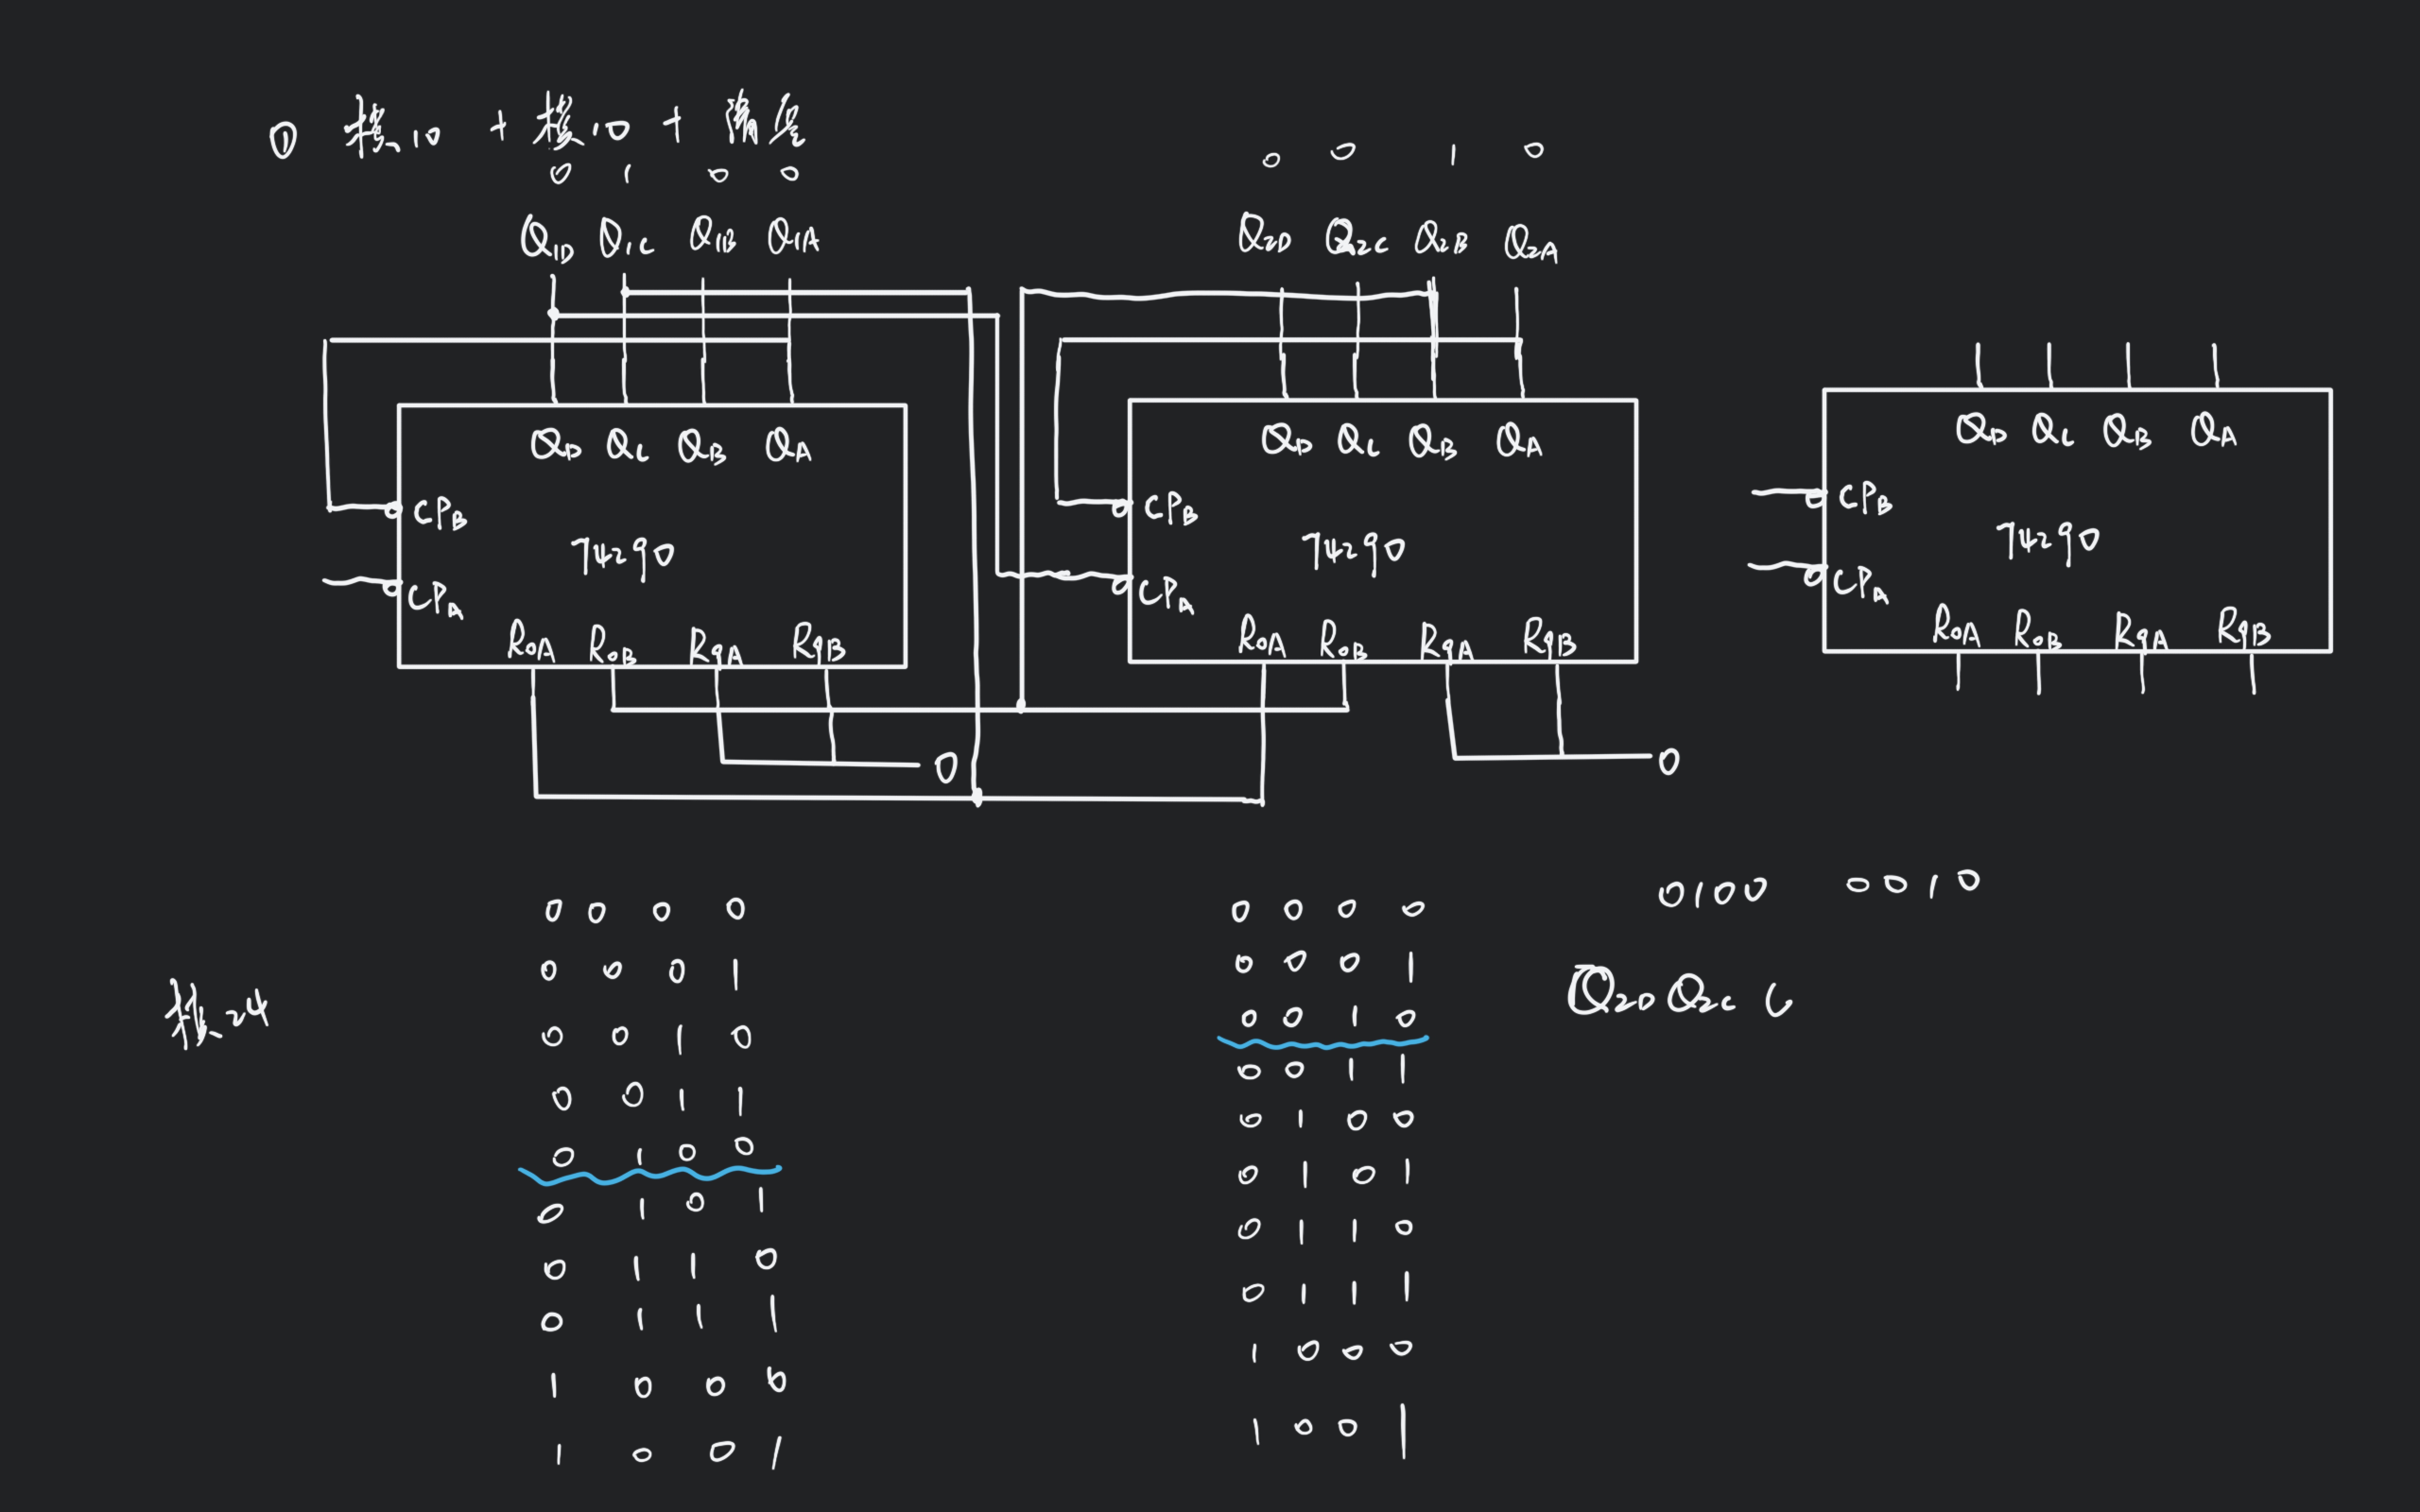 ① 模10 + 模10 +
0 1 0 0
0 0 1 0
Q1D Q1C Q1B Q1A
Q2D Q2C Q2B Q2A
QD QC QB QA
CPB
74290
CPA
R0A R0B R9A R9B
0
QD QC QB QA
CPB
74290
CPA
R0A R0B R9A R9B
0
QD QC QB QA
CPB
74290
CPA
R0A R0B R9A R9B
模24
0 0 0 0
0 0 0 1
0 0 1 0
0 0 1 1
0 1 0 0
0 1 0 1
0 1 1 0
0 1 1 1
1 0 0 0
1 0 0 1
0 0 0 0
0 0 0 1
0 0 1 0
0 0 1 1
0 1 0 0
0 1 0 1
0 1 1 0
0 1 1 1
1 0 0 0
1 0 0 1
0100 0010
Q̅2D Q2C